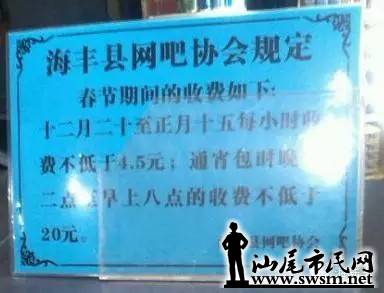 海丰县网吧协会规定
春节期间的收费如下:
十二月二十至正月十五每小时收
费不低于4.5元；通宵包时晚
二点至早上八点的收费不低于
20元。
县网吧协会
汕尾市民网
www.swsm.net